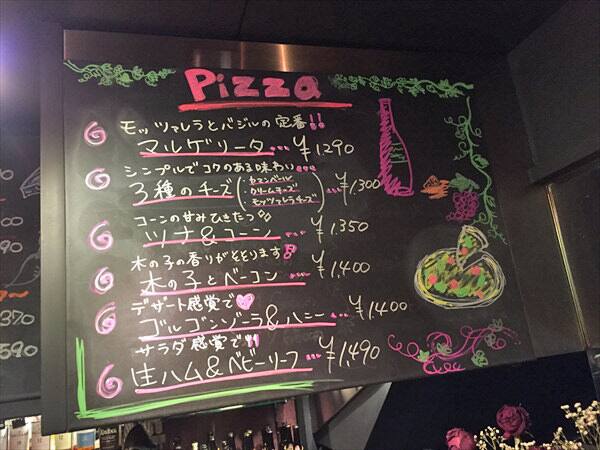 Pizza
モッツァレラとバジルの定番!!
マルゲリータ … ¥1290
シンプルでコクのある味わい
3種のチーズ(カマンベール クリームチーズ モッツァレラチーズ) … ¥1,300
コーンの甘みひきたつ
ツナ&コーン … ¥1,350
木の子の香りがそそります!
木の子とベーコン … ¥1,400
デザート感覚で♥
ゴルゴンゾーラ&ハニー … ¥1,400
サラダ感覚で!!
生ハム&ベビーリーフ … ¥1,490
370
590